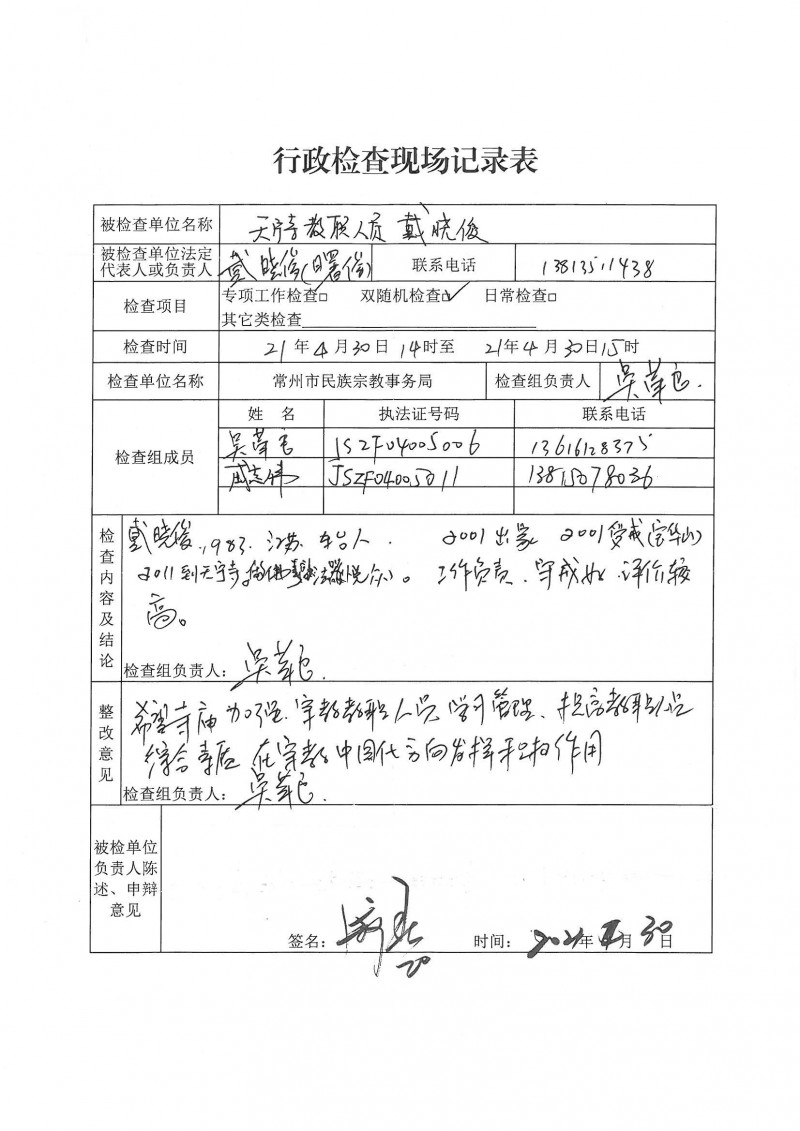 行政检查现场记录表
被检查单位名称 天宁寺教职人员 戴晓俊
被检查单位法定代表人或负责人 戴晓俊(曙俊) 联系电话 13813511438
检查项目 专项工作检查□ 双随机检查☑ 日常检查□
其它类检查
检查时间 21年4月30日14时至 21年4月30日15时
检查单位名称 常州市民族宗教事务局 检查组负责人 吴
检查组成员 姓 名 执法证号码 联系电话
吴 JSZF04005006 13616128375
周志伟 JSZF04005011 13815078036
检查内容及结论 戴晓俊, 1983. 江苏 东台人. 2001出家 2001受戒(宝华山)
2011到天宁寺 工作负责、守戒 评价较
高。
检查组负责人: 吴
整改意见 希望寺庙加强宗教教职人员学习管理、提高教职人员
综合素质 在宗教中国化方向发挥积极作用
检查组负责人: 吴
被检单位负责人陈述、申辩意见
签名: 时间: 2021年4月30日